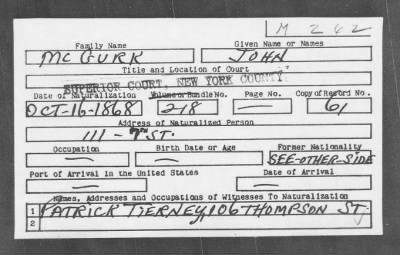 M 242
Family Name Given Name or Names
McGURK JOHN
Title and Location of Court
SUPERIOR COURT, NEW YORK COUNTY.
Date of Naturalization Volume or Bundle No. Page No. Copy of Record No.
OCT-16-1868 218 — 61
Address of Naturalized Person
111 - 7TH ST.
Occupation Birth Date or Age Former Nationality
— — SEE-OTHER-SIDE
Port of Arrival in the United States Date of Arrival
— —
Names, Addresses and Occupations of Witnesses To Naturalization
1 PATRICK TIERNEY, 106 THOMPSON ST.
2